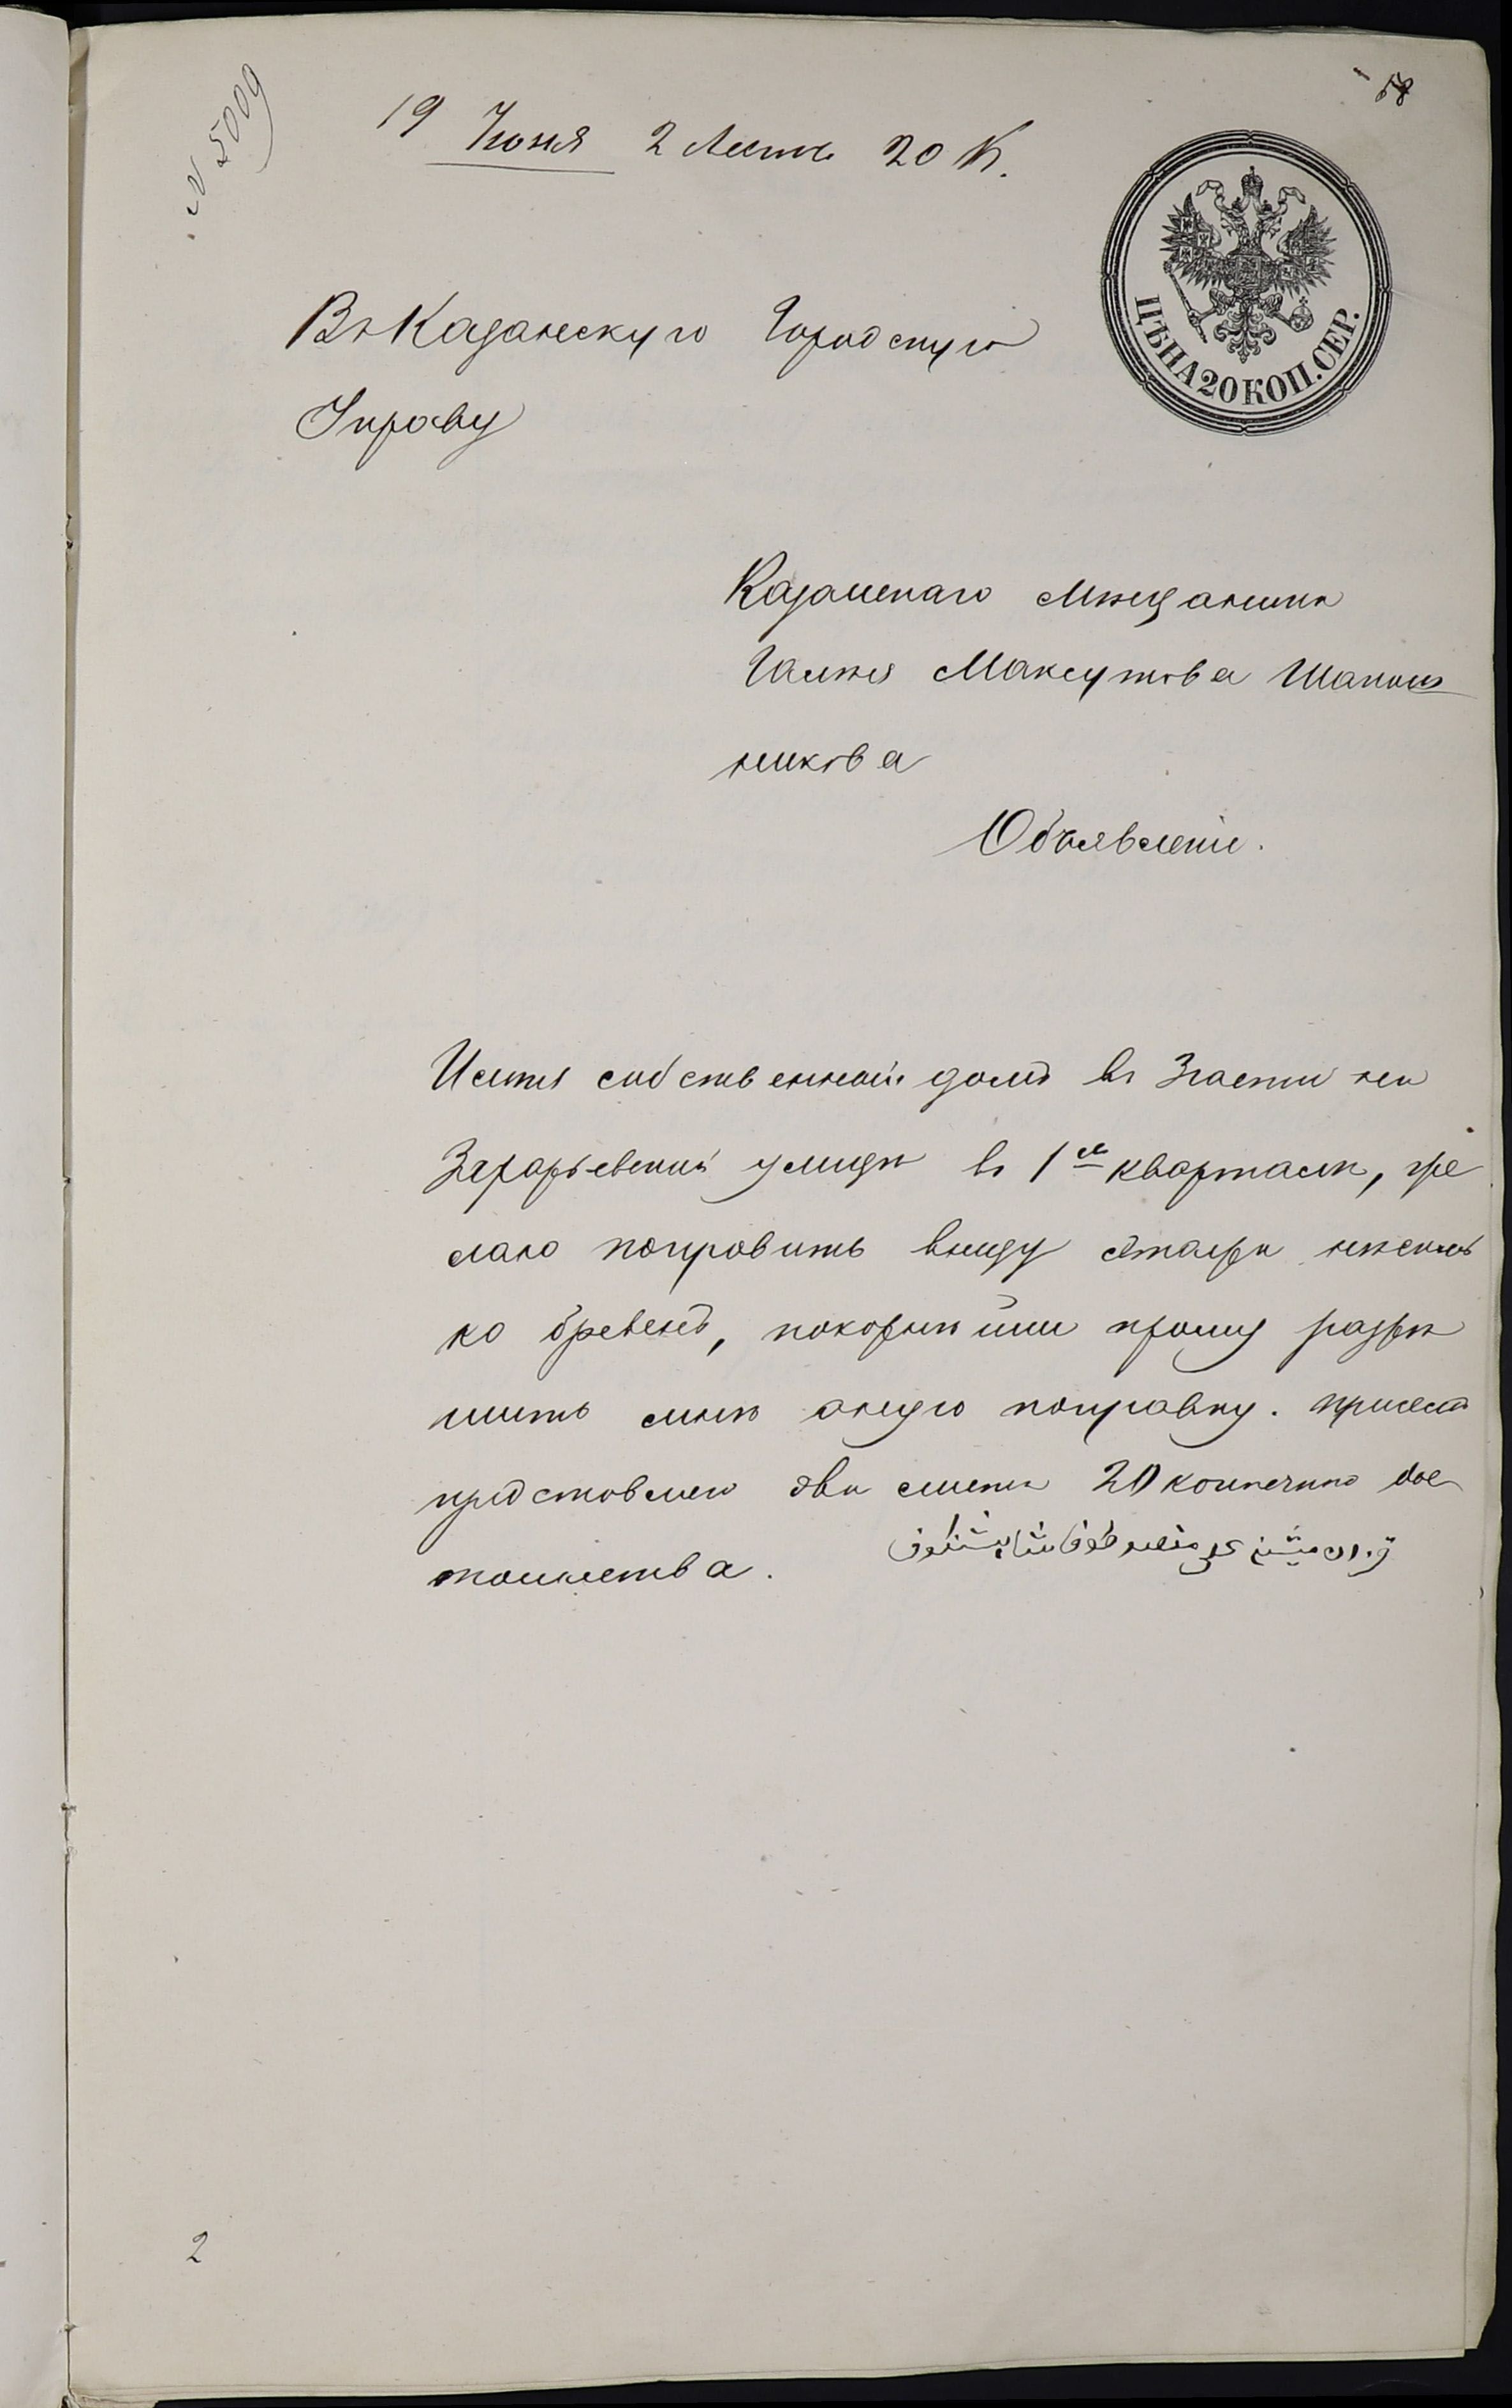 58
№ 5009
19 Июня 2 Листа 20 К.
ЦѢНА 20 КОП. СЕР.
Въ Казанскую Городскую
Управу
Казанскаго мѣщанина
Максутова Шапош
никова
Объявленіе.
Имѣя собственной домъ въ 3 части на
Захарьевской улицѣ въ 1м кварталѣ, же
лаю поправить внизу нѣсколь
ко бревенъ, покорнѣйше прошу разрѣ
шить мнѣ оную поправку. присемъ
представляю два листа 20 копѣечно дос
тоинства.
2